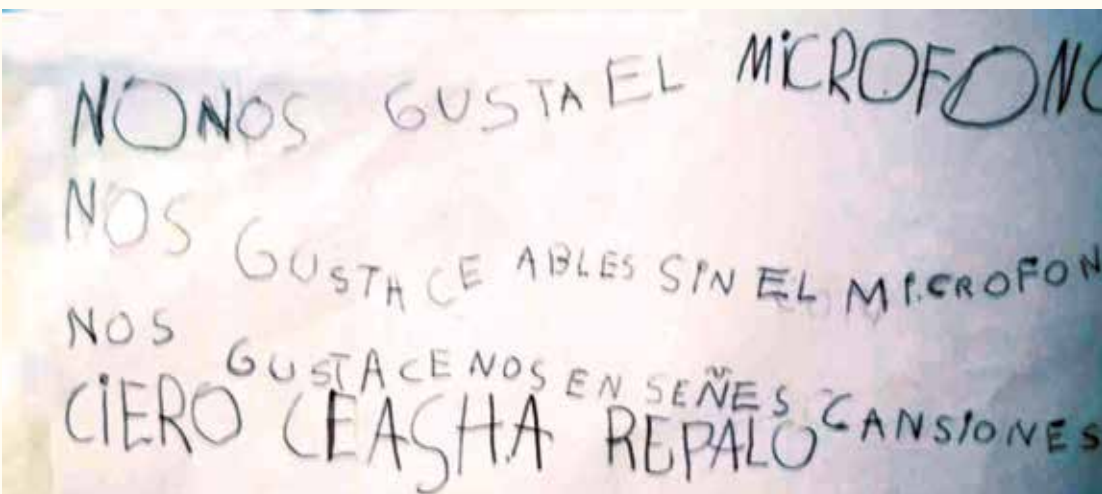 NO NOS GUSTA EL MICROFONO
NOS GUSTA CE ABLES SIN EL MICROFON
NOS GUSTA CE NOS EN SEÑES CANSIONES
CIERO CEASHA REPALO